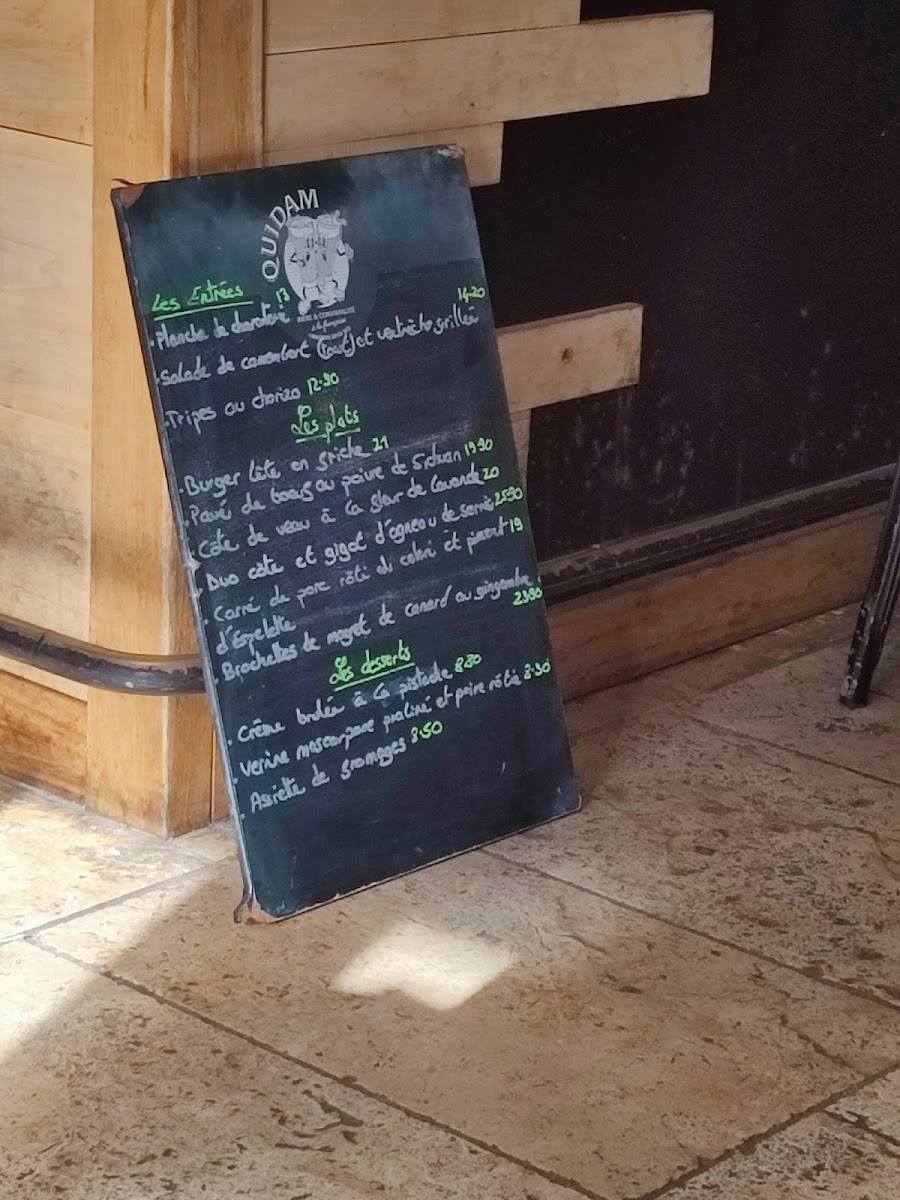 QUIDAM
BIÈRE & CONVIVIALITÉ
à la française
Les Entrées
· Planche de charcuterie 13
14.20
· Salade de camembert (toast) et ventrèche grillée
· Tripes au chorizo 12.90
Les plats
· Burger tête en friche 21
· Pavé de boeuf au poivre de Sichuan 19.90
· Côte de veau à la fleur de lavande 20
· Duo côte et gigot d'agneau de serrés 25.90
· Carré de porc rôti au céleri et piment 19
d'Espelette
· Brochettes de magret de canard au gingembre
23.90
Les desserts
· Crème brulée à la pistache 8.20
· Verrine mascarpone praliné et poire rôtie 8.30
· Assiette de fromages 8.50